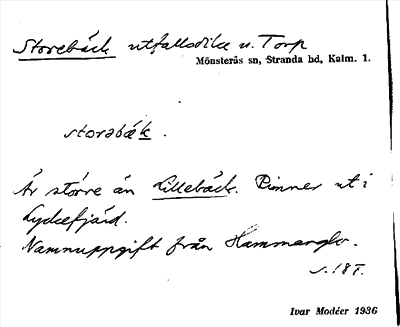 Storebäck utfallsdike u. Torp
Mönsterås sn, Stranda hd, Kalm. l.
storəbäk.
Är större än Lillebäck. Rinner ut i
Lyckefjärd.
Namnuppgift från Hammarglo.
s. 18 F.
Ivar Modéer 1936